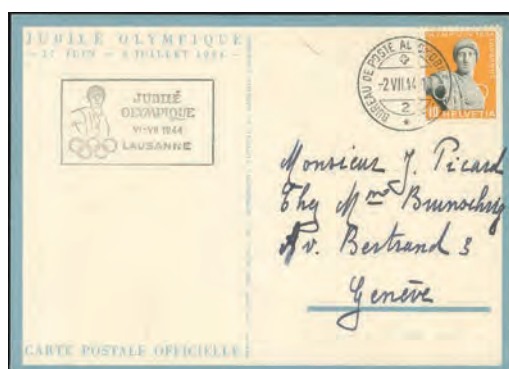 JUBILÉ OLYMPIQUE
JUBILÉ
OLYMPIQUE
VI-VII 1944
LAUSANNE
BUREAU DE POSTE AL
-2.VII.
2
10
HELVETIA
Monsieur J. Picard
Chez Mme
Av. Bertrand 3
Genève
CARTE POSTALE OFFICIELLE